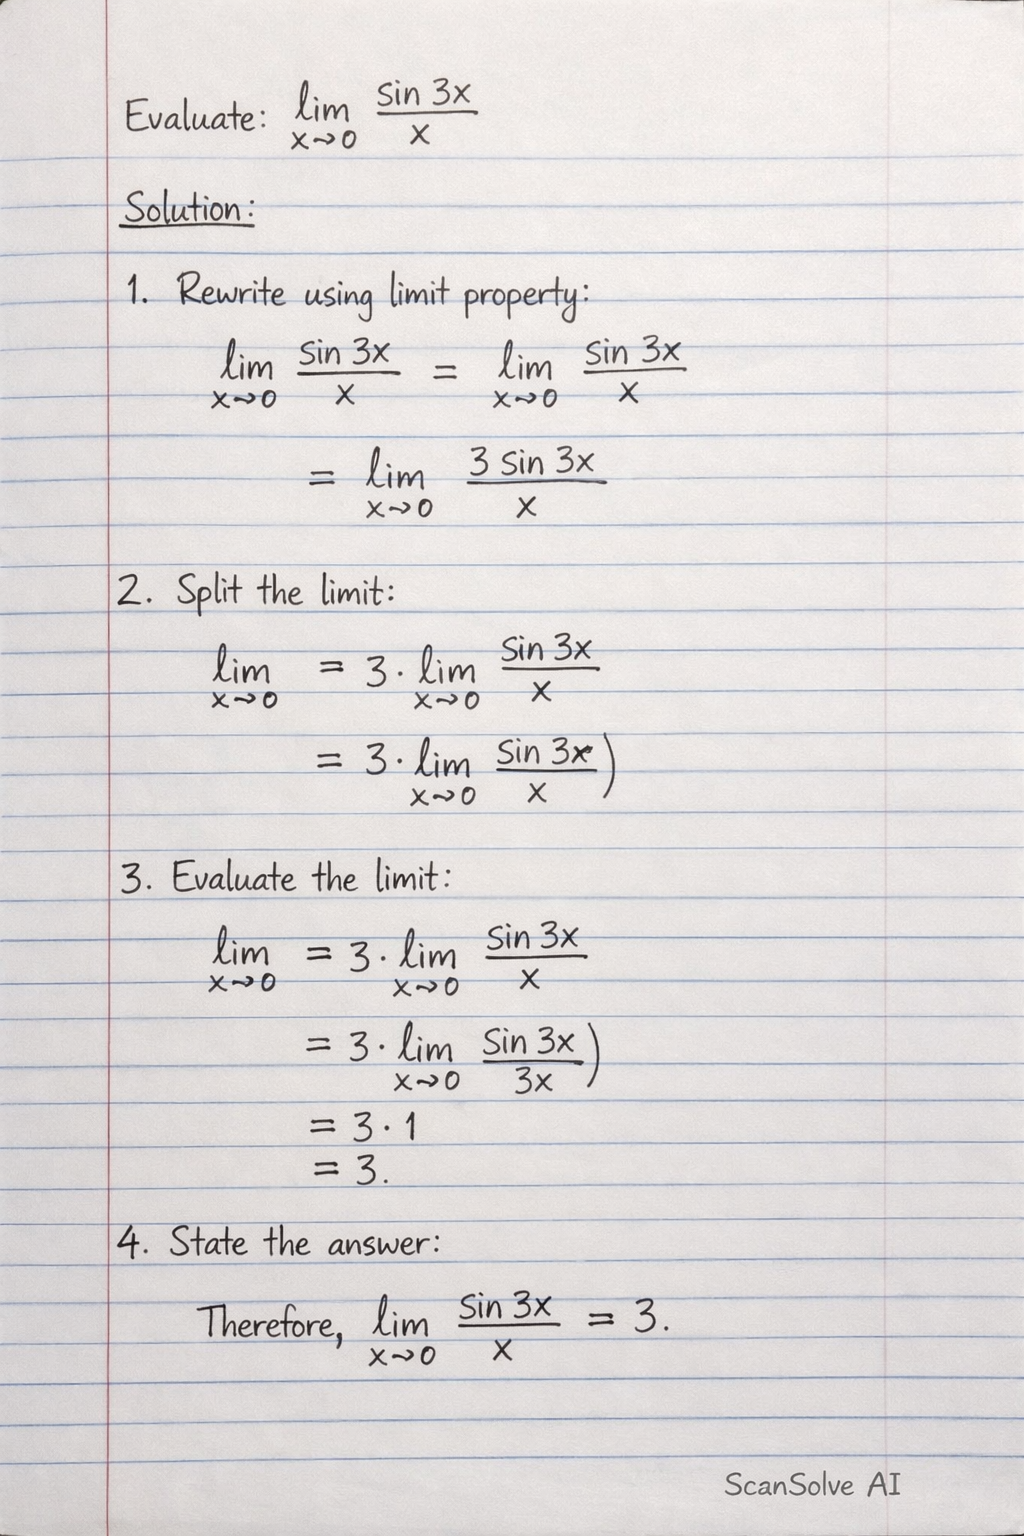 Evaluate: lim x→0 sin 3x / x
Solution:
1. Rewrite using limit property:
lim x→0 sin 3x / x = lim x→0 sin 3x / x
= lim x→0 3 sin 3x / x
2. Split the limit:
lim x→0 = 3 · lim x→0 sin 3x / x
= 3 · lim x→0 sin 3x / x )
3. Evaluate the limit:
lim x→0 = 3 · lim x→0 sin 3x / x
= 3 · lim x→0 sin 3x / 3x )
= 3 · 1
= 3.
4. State the answer:
Therefore, lim x→0 sin 3x / x = 3.
ScanSolve AI